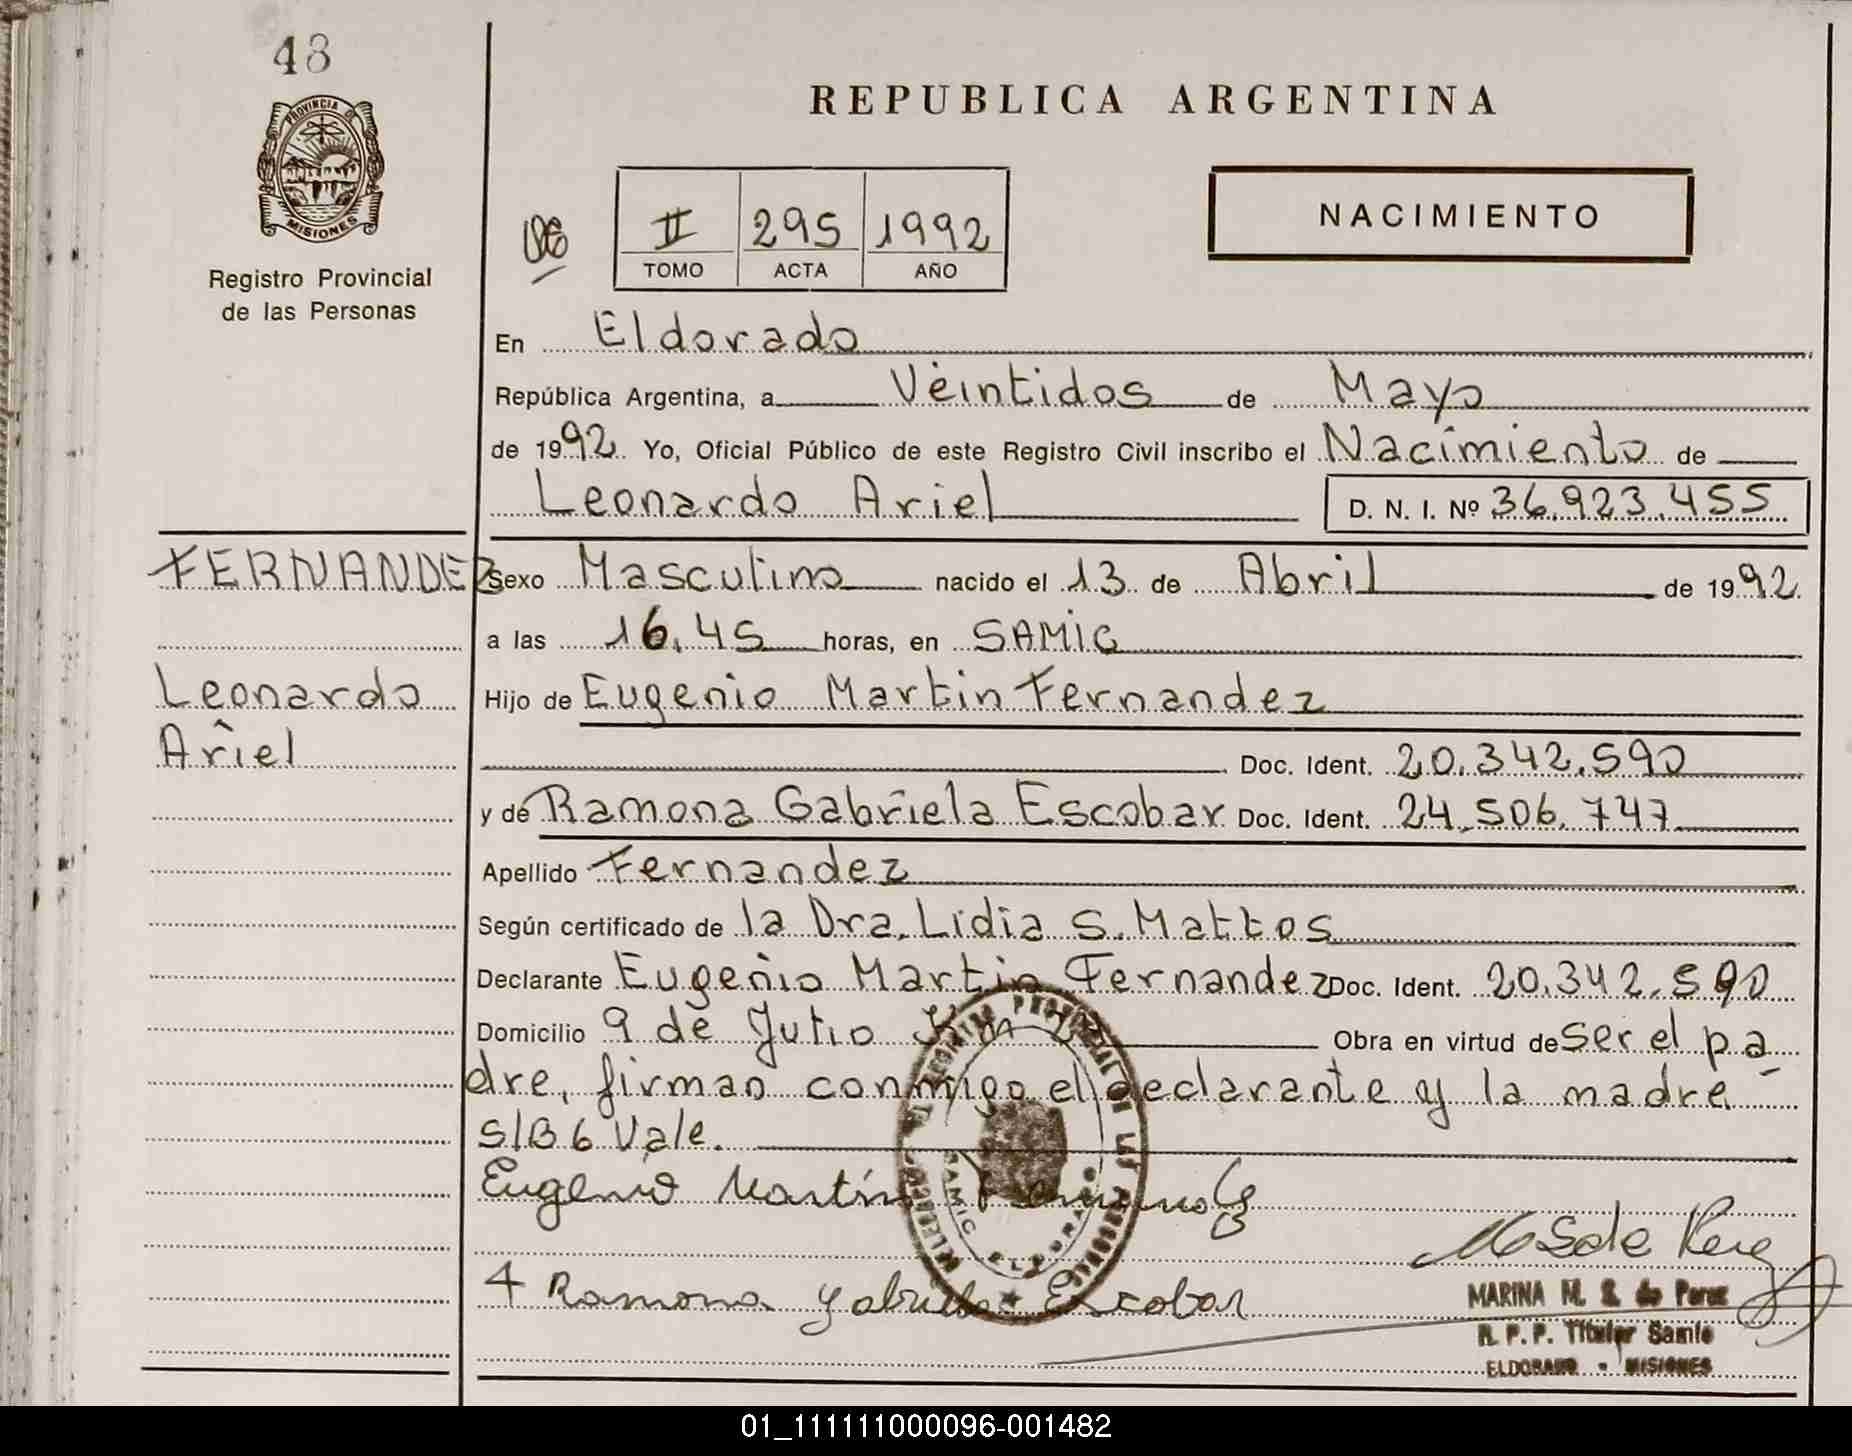 48
PROVINCIA DE
MISIONES
Registro Provincial
de las Personas
REPUBLICA ARGENTINA
NACIMIENTO
II 295 1992
TOMO ACTA AÑO
En Eldorado
República Argentina, a Veintidos de Mayo
de 1992. Yo, Oficial Público de este Registro Civil inscribo el Nacimiento de
Leonardo Ariel D. N. I. Nº 36.923.455
FERNANDEZ
Leonardo
Ariel
Sexo Masculino nacido el 13 de Abril de 1992
a las 16.45 horas, en SAMIC
Hijo de Eugenio Martin Fernandez
Doc. Ident. 20.342.590
y de Ramona Gabriela Escobar Doc. Ident. 24.506.747
Apellido Fernandez
Según certificado de la Dra. Lidia S. Mattos
Declarante Eugenio Martin Fernandez Doc. Ident. 20.342.590
Domicilio 9 de Julio Km Obra en virtud de ser el pa
dre, firman conmigo el declarante y la madre
S/B 6 Vale.
Eugenio Martín Fernandez
4 Ramona Gabriela Escobar
REGISTRO PROVINCIAL DE LAS PERSONAS
SAMIC ELDORADO
MARINA M. S. de Perez
R. P. P. Titular Samic
ELDORADO - MISIONES
01_111111000096-001482